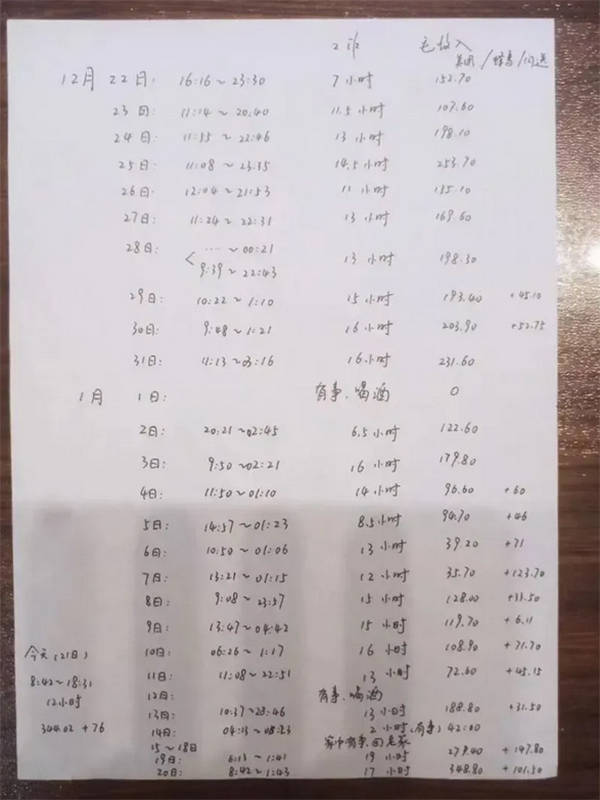 工作 毛收入
美团/蜂鸟/闪送
12月 22日: 16:16~23:30 7小时 152.70
23日: 11:14~20:40 11.5小时 107.60
24日: 11:55~22:46 13小时 198.10
25日: 11:08~23:35 14.5小时 253.70
26日: 12:04~21:53 11小时 135.10
27日: 11:24~22:31 13小时 169.60
28日: < ...~00:21
9:39~22:43 13小时 198.30
29日: 10:22~1:10 15小时 193.40 +45.10
30日: 9:48~1:21 16小时 203.90 +52.75
31日: 11:13~03:16 16小时 231.60
1月 1日: 有事、喝酒 0
2日: 20:21~02:45 6.5小时 122.60
3日: 9:50~02:21 16小时 179.80
4日: 11:50~01:10 14小时 96.60 +60
5日: 14:57~01:23 8.5小时 94.70 +46
6日: 10:50~01:06 13小时 39.20 +71
7日: 13:21~01:15 12小时 35.70 +123.70
8日: 9:08~23:57 15小时 128.00 +31.50
9日: 13:47~04:42 15小时 119.70 +6.11
10日: 06:26~1:17 16小时 108.90 +71.70
11日: 11:08~22:51 13小时 72.60 +45.15
12日: 有事、喝酒
13日: 10:37~23:46 13小时 188.80 +31.50
14日: 04:13~08:23 2小时(有事) 42.00
15~18日 家中有事,回老家
19日: 6:13~1:41 19小时 279.40 +147.80
20日: 8:42~1:43 17小时 348.80 +101.50
今天(21日)
8:42~18:31
12小时
344.02+76